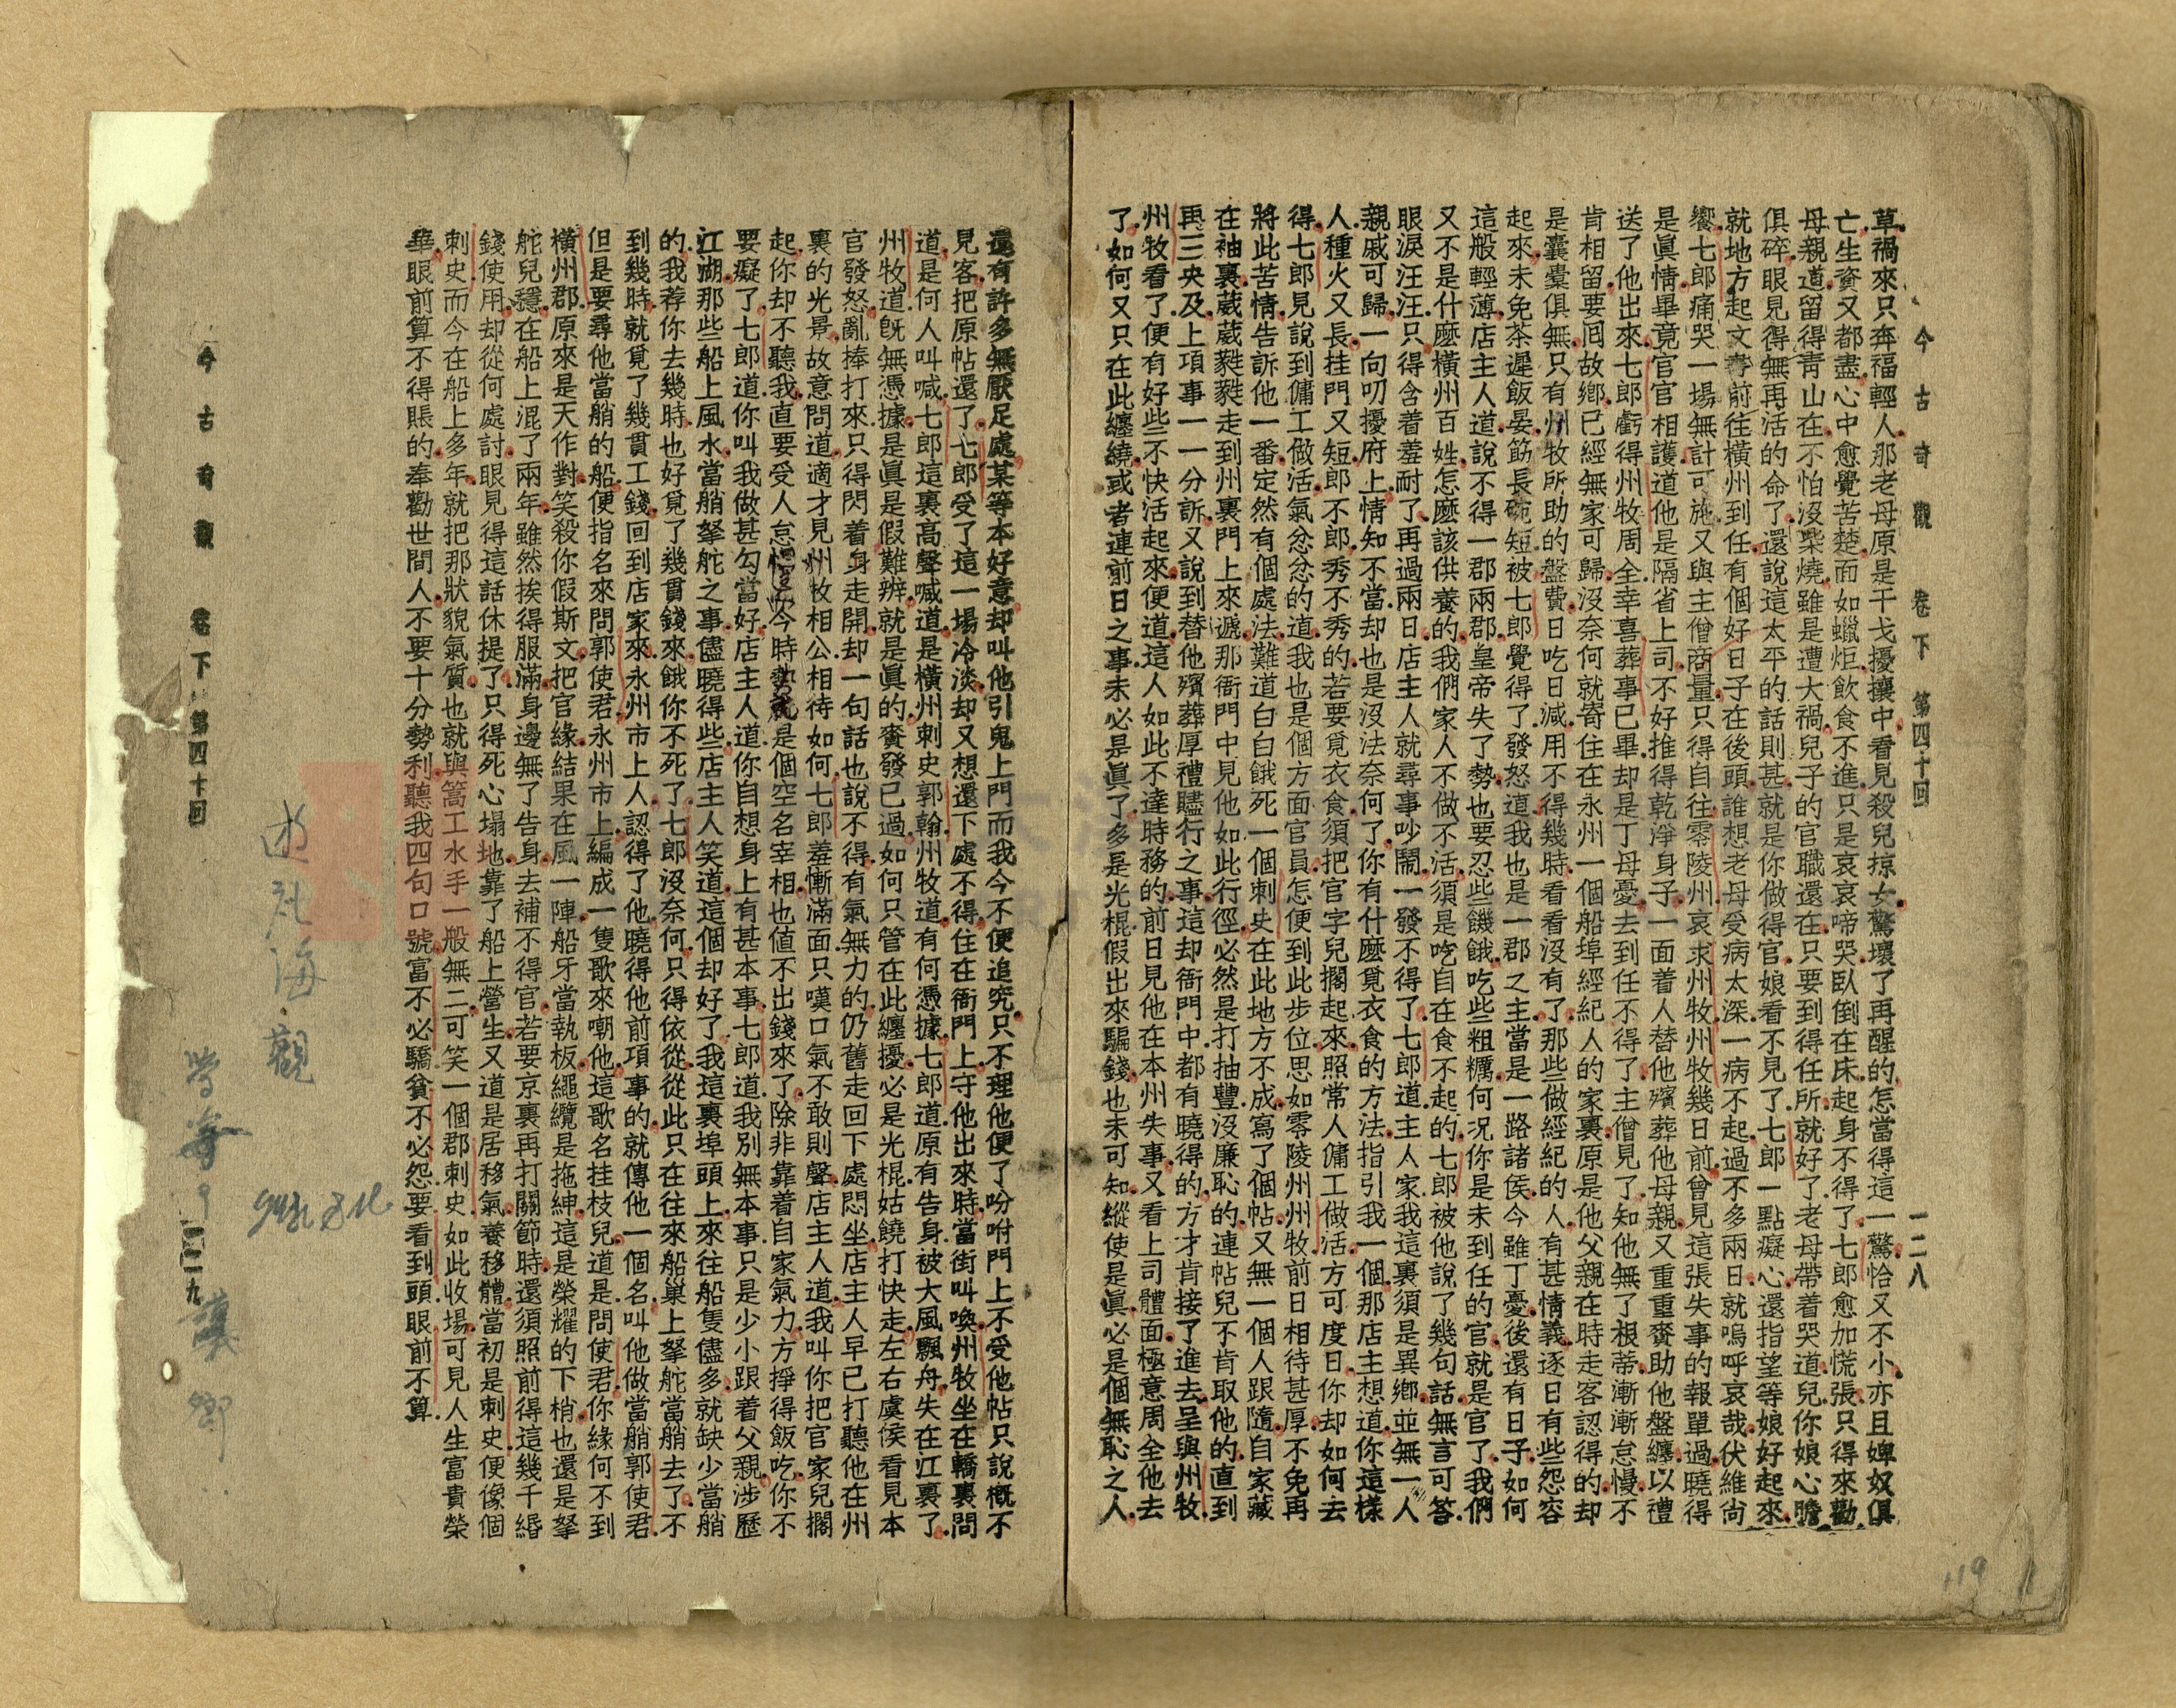 今古奇觀　卷下　第四十回　一二八
草禍來只奔福輕人那老母原是干戈擾攘中看見殺兒掠女驚壞了再醒的怎當得這一驚恰又不小亦且婢奴俱
亡生資又都盡心中愈覺苦楚面如蠟炬飲食不進只是哀哀啼哭臥倒在床起身不得了七郎愈加慌張只得來勸
母親道留得青山在不怕沒柴燒雖是遭大禍兒子的官職還在只要到得任所就好了老母帶着哭道兒你娘心膽
俱碎眼見得無再活的命了還說這太平的話則甚就是你做得官娘看不見了七郎一點癡心還指望等娘好起來
就地方起文書前往橫州到任有個好日子在後頭誰想老母受病太深一病不起過不多兩日就嗚呼哀哉伏維尚
饗七郎痛哭一場無計可施又與主僧商量只得自往零陵州哀求州牧州牧幾日前曾見這張失事的報單過曉得
是眞情畢竟官官相護道他是隔省上司不好推得乾淨身子一面着人替他殯葬他母親又重重賫助他盤纏以禮
送了他出來七郎虧得州牧周全幸喜葬事已畢却是丁母憂去到任不得了主僧見了知他無了根蒂漸漸怠慢不
肯相留要囘故鄉已經無家可歸沒奈何就寄住在永州一個船埠經紀人的家裏原是他父親在時走客認得的却
是囊橐俱無只有州牧所助的盤費日吃日減用不得幾時看看沒有了那些做經紀的人有甚情義逐日有些怨容
起來未免茶遲飯晏筯長碗短被七郎覺得了發怒道我也是一郡之主當是一路諸侯今雖丁憂後還有日子如何
這般輕薄店主人道說不得一郡兩郡皇帝失了勢也要忍些饑餓吃些粗糲何况你是未到任的官就是官了我們
又不是什麽橫州百姓怎麽該供養的我們家人不做不活須是吃自在食不起的七郎被他說了幾句話無言可答
眼淚汪汪只得含着羞耐了再過兩日店主人就尋事吵鬧一發不得了七郎道主人家我這裏須是異鄉並無一人
親戚可歸一句叨擾府上情知不當却也是沒法奈何了你有什麽覓衣食的方法指引我一個那店主想道你這樣
人種火又長挂門又短郎不郎秀不秀的若要覓衣食須把官字兒擱起來照常人傭工做活方可度日你却如何去
得七郎見說到傭工做活氣忿忿的道我也是個方面官員怎便到此步位思如零陵州州牧前日相待甚厚不免再
將此苦情告訴他一番定然有個處法難道白白餓死一個刺史在此地方不成寫了個帖又無一個人跟隨自家藏
在袖裏葳葳蕤蕤走到州裏門上來遞那衙門中見他如此行徑必然是打抽豐沒廉恥的連帖兒不肯取他的直到
再三央及上項事一一分訴又說到替他殯葬厚禮贐行之事這却衙門中都有曉得的方才肯接了進去呈與州牧
州牧看了便有好些不快活起來便道這人如此不達時務的前日見他在本州失事又看上司體面極意周全他去
了如何又只在此纏繞或者連前日之事未必是眞了多是光棍假出來騙錢也未可知縱使是眞必是個無恥之人
119
還有許多無厭足處某等本好意却叫他引鬼上門而我今不便追究只不理他便了吩咐門上不受他帖只說槪不
見客把原帖還了七郎受了這一場冷淡却又想還下處不得住在衙門上守他出來時當街叫喚州牧坐在轎裏問
道是何人叫喊七郎這裏高聲喊道是橫州刺史郭翰州牧道有何憑據七郎道原有告身被大風飄舟失在江裏了
州牧道旣無憑據是眞是假難辨就是眞的賫發已過如何只管在此纏擾必是光棍姑饒打快走左右虞侯看見本
官發怒亂捧打來只得閃着身走開却一句話也說不得有氣無力的仍舊走回下處悶坐店主人早已打聽他在州
裏的光景故意問道適才見州牧相公相待如何七郎羞慚滿面只嘆口氣不敢則聲店主人道我叫你把官家兒擱
起你却不聽我直要受人怠慢今時勢就是個空名宰相也値不出錢來了除非靠着自家氣力方掙得飯吃你不
要癡了七郎道你叫我做甚勾當好店主人道你自想身上有甚本事七郎道我別無本事只是少小跟着父親涉歷
江湖那些船上風水當艄拏舵之事儘曉得些店主人笑道這個却好了我這裏埠頭上來往船隻儘多就缺少當艄
的我荐你去幾時也好覓了幾貫錢來餓你不死了七郎沒奈何只得依從從此只在往來船巢上拏舵當艄去了不
到幾時就覓了幾貫工錢回到店家來永州市上人認得了他曉得他前項事的就傳他一個名叫他做當艄郭使君
但是要尋他當艄的船便指名來問郭使君永州市上編成一隻歌來嘲他這歌名挂枝兒道是問使君你緣何不到
橫州郡原來是天作對笑殺你假斯文把官緣結果在風一陣船牙當執板繩纜是拖紳這是榮耀的下梢也還是拏
舵兒穩在船上混了兩年雖然挨得服滿身邊無了告身去補不得官若要京裏再打關節時還須照前得這幾千緡
錢使用却從何處討眼見得這話休提了只得死心塌地靠了船上營生又道是居移氣養移體當初是刺史便像個
刺史而今在船上多年就把那狀貌氣質也就與篙工水手一般無二可笑一個郡刺史如此收場可見人生富貴榮
華眼前算不得賬的奉勸世間人不要十分勢利聽我四句口號富不必驕貧不必怨要看到頭眼前不算
今古奇觀　卷下　第四十回
海觀